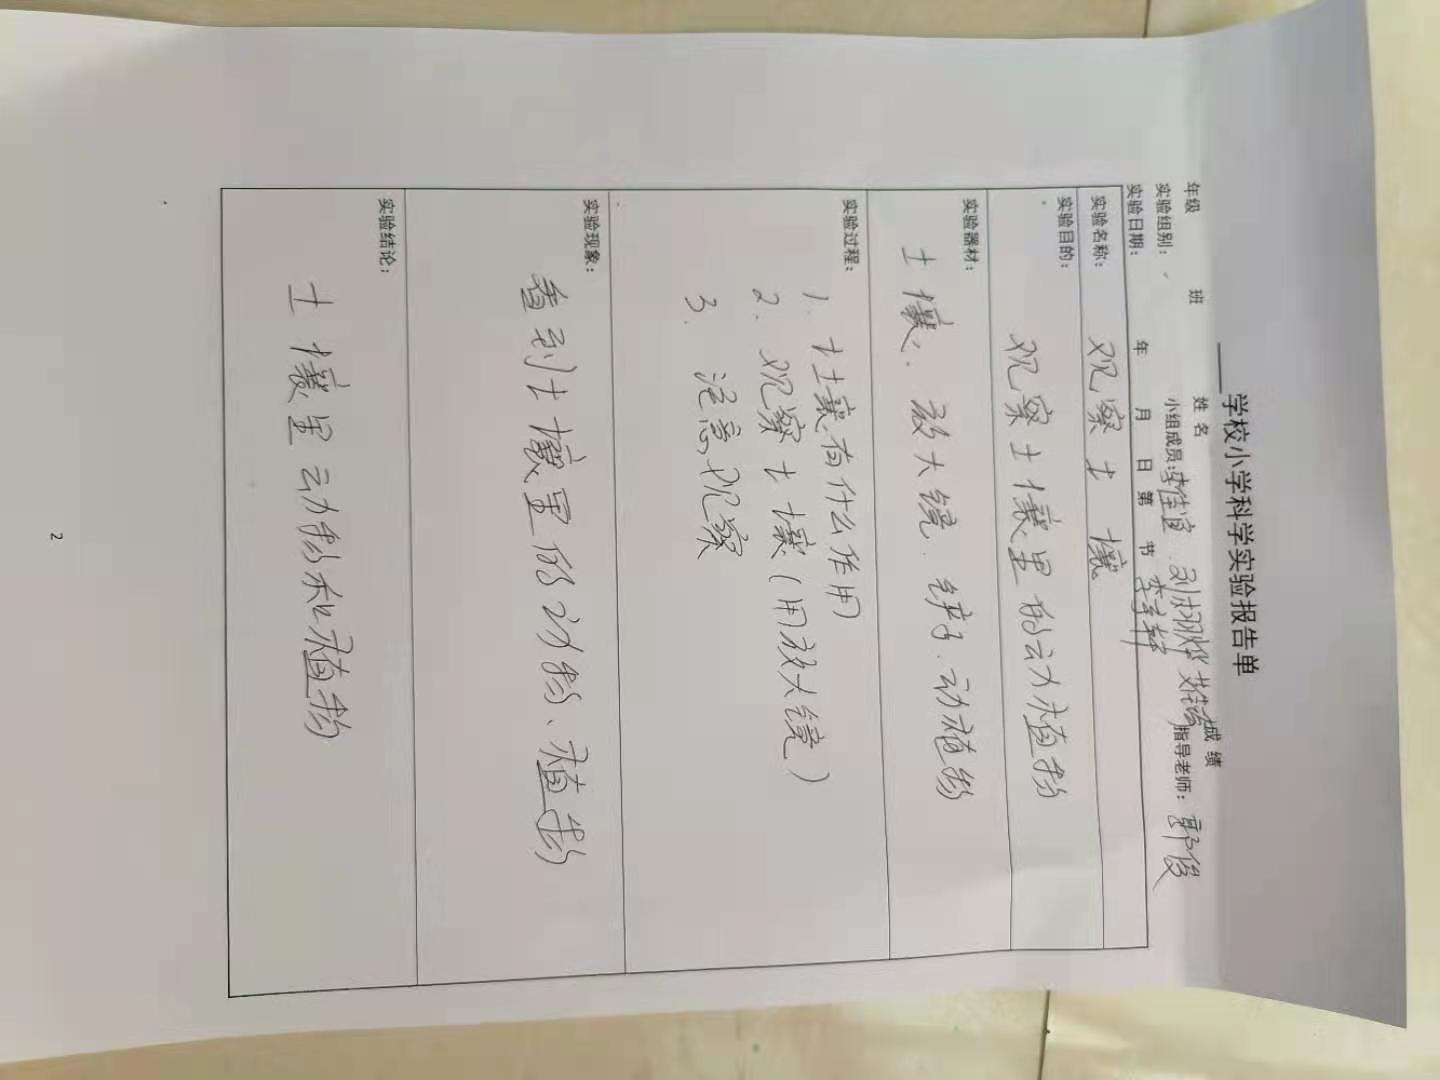 学校小学科学实验报告单
年级 班 姓名 成绩
实验组别: 小组成员:李佳 刘栩烨 指导老师: 郭俊
李宇轩
实验日期: 年 月 日 第 节
实验名称: 观察土壤
实验目的:
观察土壤里的动植物
实验器材:
土壤、放大镜、铲子、动植物
实验过程:
1. 土壤有什么作用
2. 观察土壤(用放大镜)
3. 注意观察
实验现象:
看到土壤里的动物、植物
实验结论:
土壤里动物和植物
2